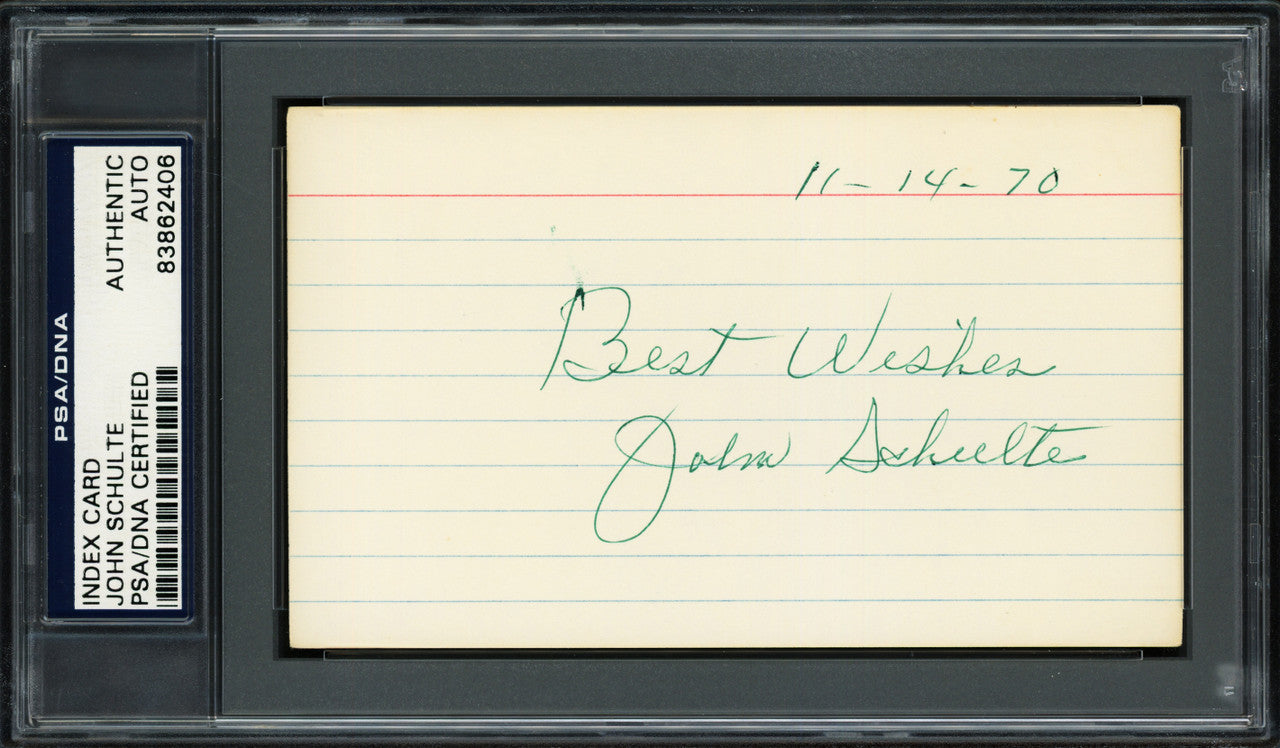 PSA/DNA
INDEX CARD AUTHENTIC
JOHN SCHULTE AUTO
PSA/DNA CERTIFIED 83862406
11-14-70
Best Wishes
John Schulte